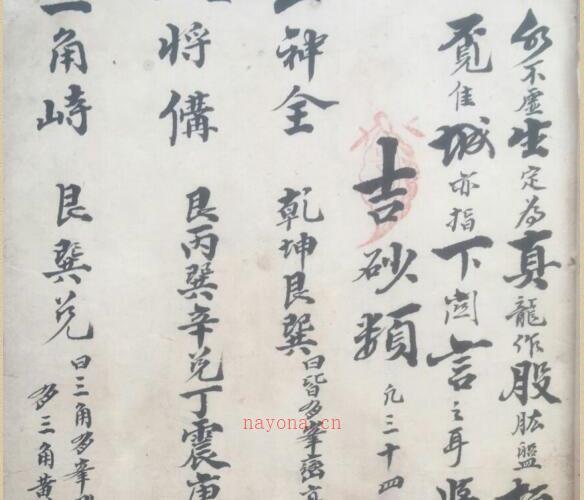 不虛生定為真龍作股肱盤
覓佳城亦指下崗言之耳
吉砂類 凡三十四
神全 乾坤艮巽 曰皆多峯
將備 艮丙巽辛兌丁震庚
三角峙 艮巽兌 曰三角多峯
多三角黃
nayona.cn